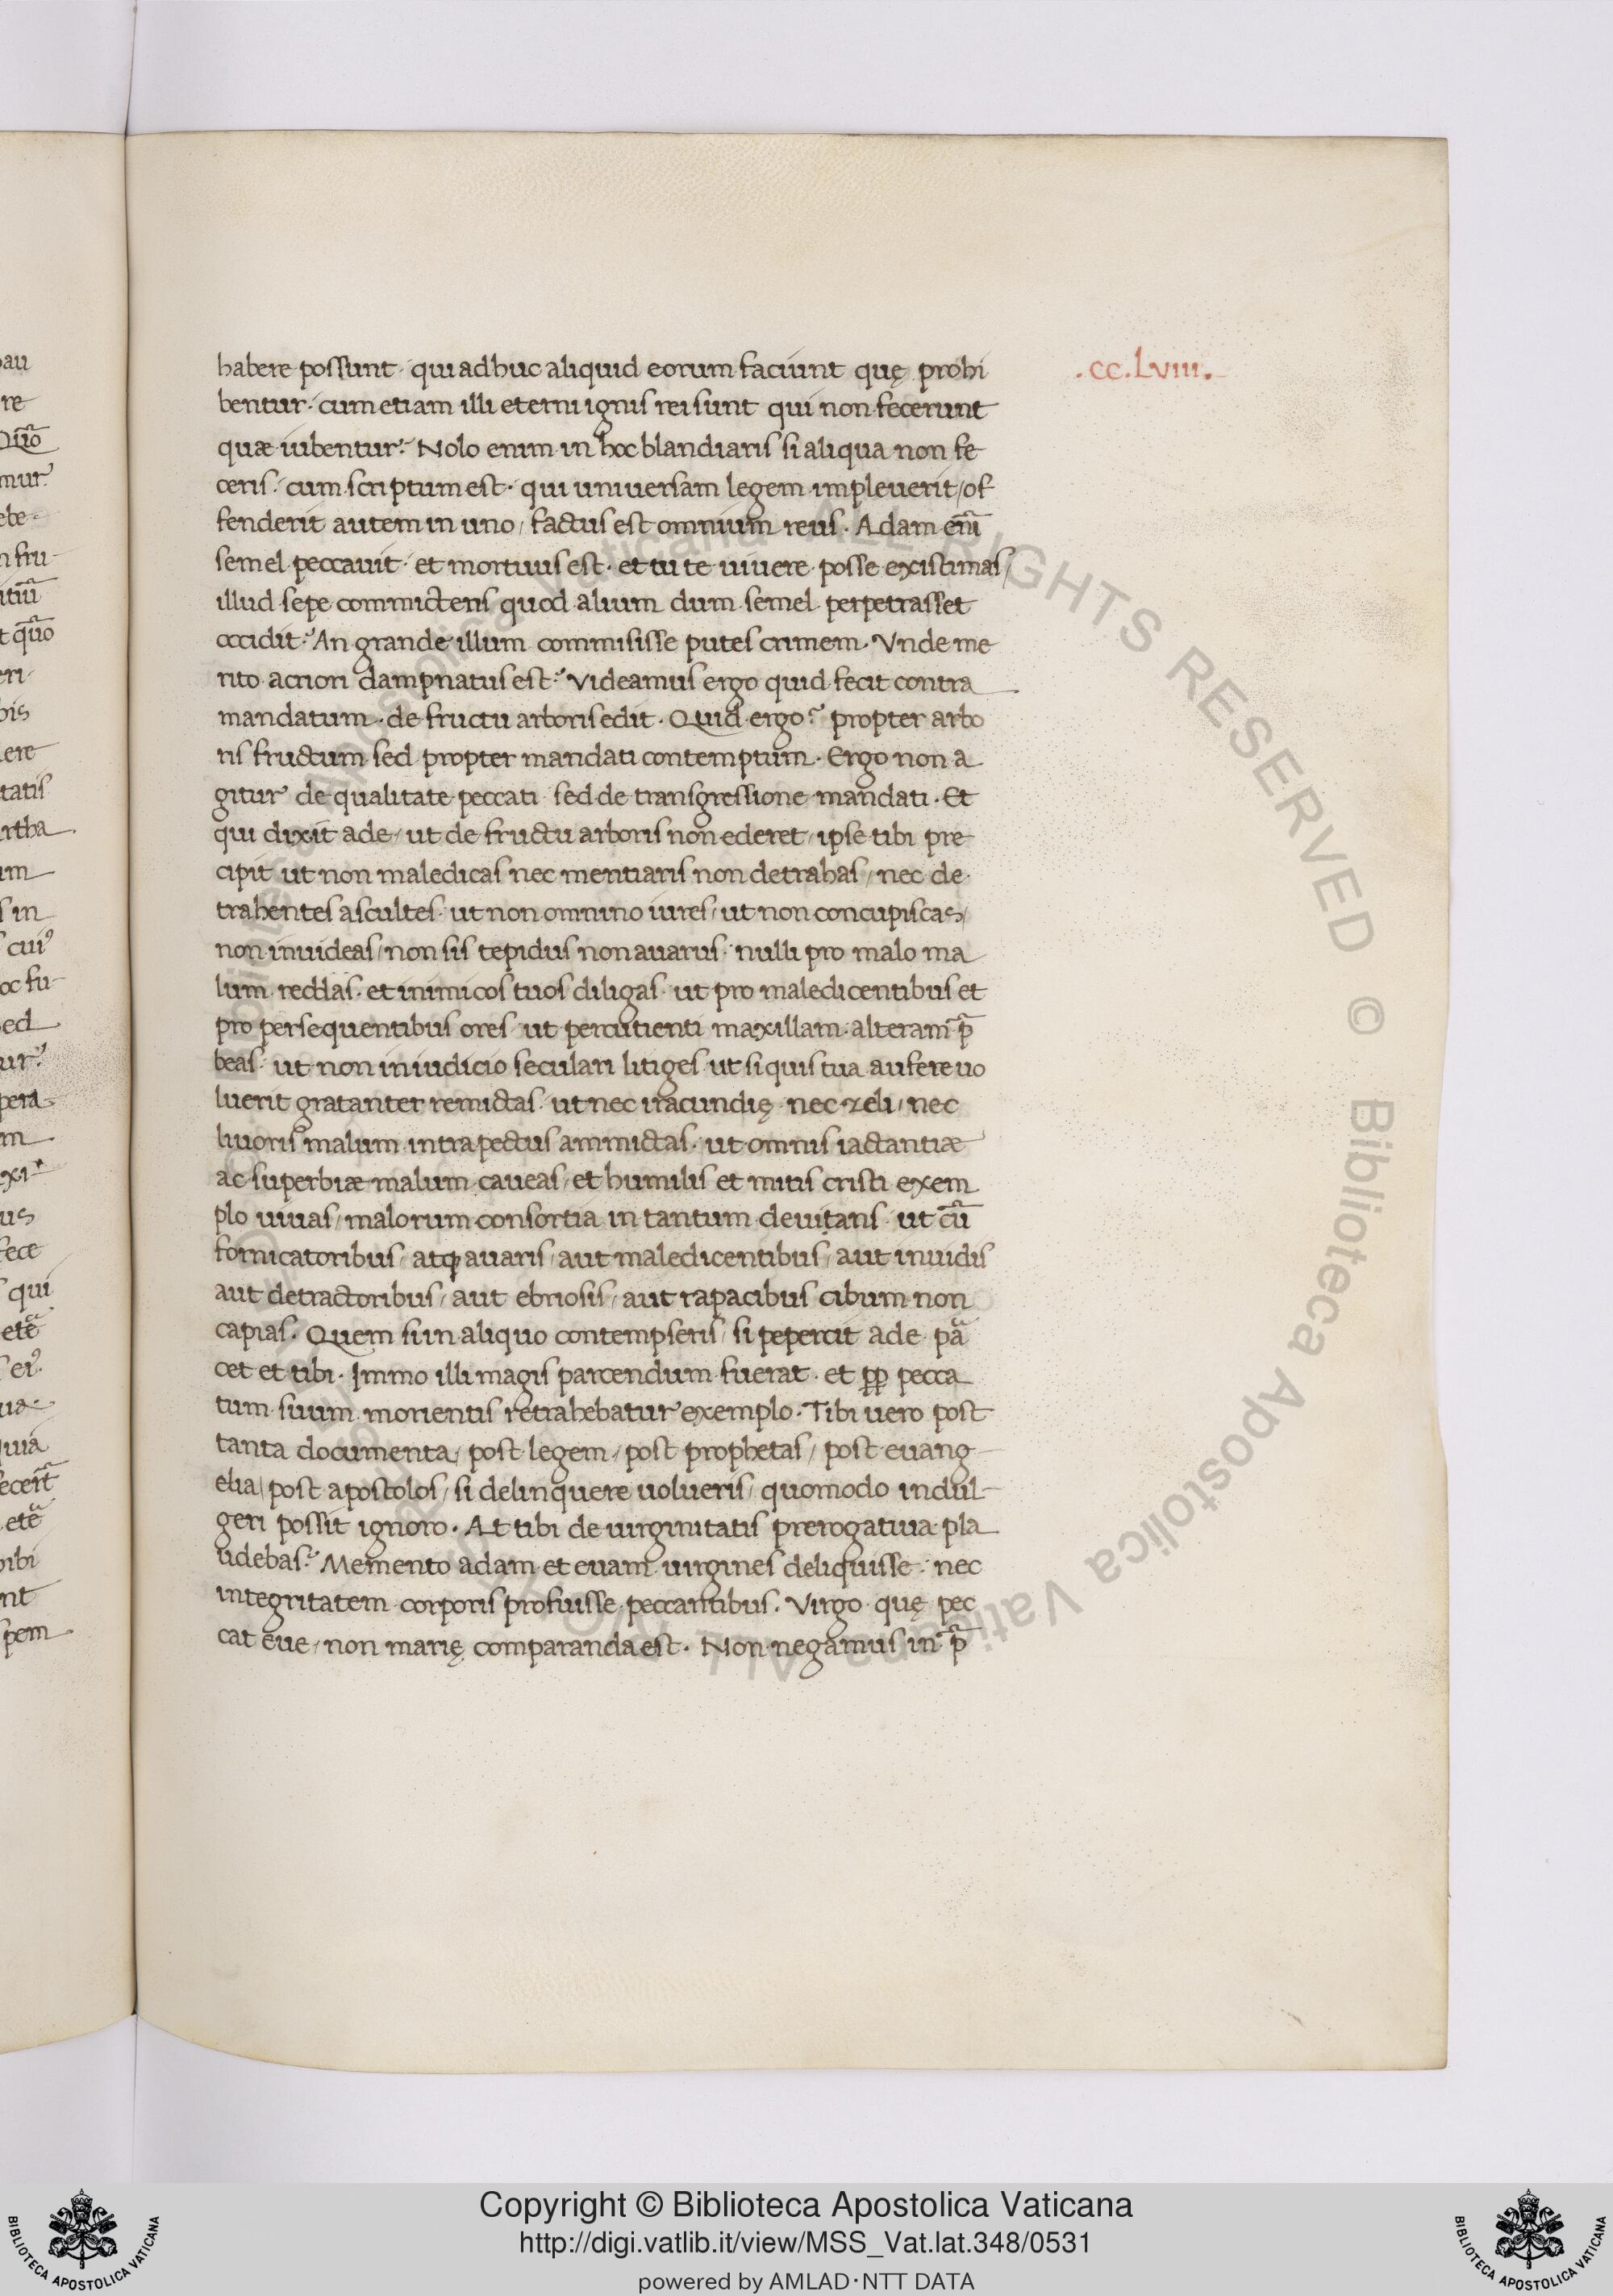 .CC.LVIII.
habere possunt· qui adhuc aliquid eorum faciunt quę prohi
bentur· cum etiam illi eterni ignis rei sunt qui non fecerunt
quæ iubentur? Nolo enim in hoc blandiaris si aliqua non fe
ceris· cum scriptum est· qui uniuersam legem impleuerit/ of
fenderit autem in uno/ factus est omnium reus. Adam eni̅
semel peccauit· et mortuus est· et tu te uiuere posse existimas/
illud sepe commictens quod alium dum semel perpetrasset
occidit? An grande illum commisisse putes crimem· Vnde me
rito acriori dampnatus est? Videamus ergo quid fecit contra
mandatum· de fructu arboris edit· Quid ergo? propter arbo
ris fructum sed propter mandati contemptum· Ergo non a
gitur de qualitate peccati sed de transgressione mandati· Et
qui dixit ade/ ut de fructu arboris non ederet/ ipse tibi pre
cipit ut non maledicas nec mentiaris non detrahas/ nec de
trahentes ascultes· ut non omnino iures/ ut non concupiscas/
non inuideas/ non sis tepidus non auarus· nulli pro malo ma
lum reddas· et inimicos tuos diligas· ut pro maledicentibus et
pro persequentibus ores· ut percutienti maxillam alteram p̅
beas· ut non in iudicio seculari litiges ut si quis tua aufere uo
luerit gratanter remictas· ut nec iracundię nec zeli/ nec
liuoris malum intra pectus ammictas· ut omnis iactantiæ
ac superbiæ malum caueas/ et humilis et mitis cristi exem
plo uiuas/ malorum consortia in tantum deuitans ut cu̅
fornicatoribus/ atq auaris/ aut maledicentibus/ aut inuidis
aut detractoribus/ aut ebriosis/ aut rapacibus cibum non
capias· Quem si in aliquo contempseris/ si pepercit ade pa̅
cet et tibi· Immo illi magis parcendum fuerat· et p̅p̅ pecca
tum suum morientis retrahebatur exemplo· Tibi uero post
tanta documenta/ post legem/ post prophetas/ post euang
elia/ post apostolos/ si delinquere uolueris/ quomodo indul-
geri possit ignoro· At tibi de uirginitatis prerogatiua pla
udebas? Memento adam et euam uirgines deliquisse· nec
integritatem corporis profuisse peccantibus· Virgo quę pec
cat eue/ non marię comparanda est· Non negamus in p̅
Copyright © Biblioteca Apostolica Vaticana
http://digi.vatlib.it/view/MSS_Vat.lat.348/0531
powered by AMLAD·NTT DATA
BIBLIOTECA APOSTOLICA VATICANA
BIBLIOTECA APOSTOLICA VATICANA